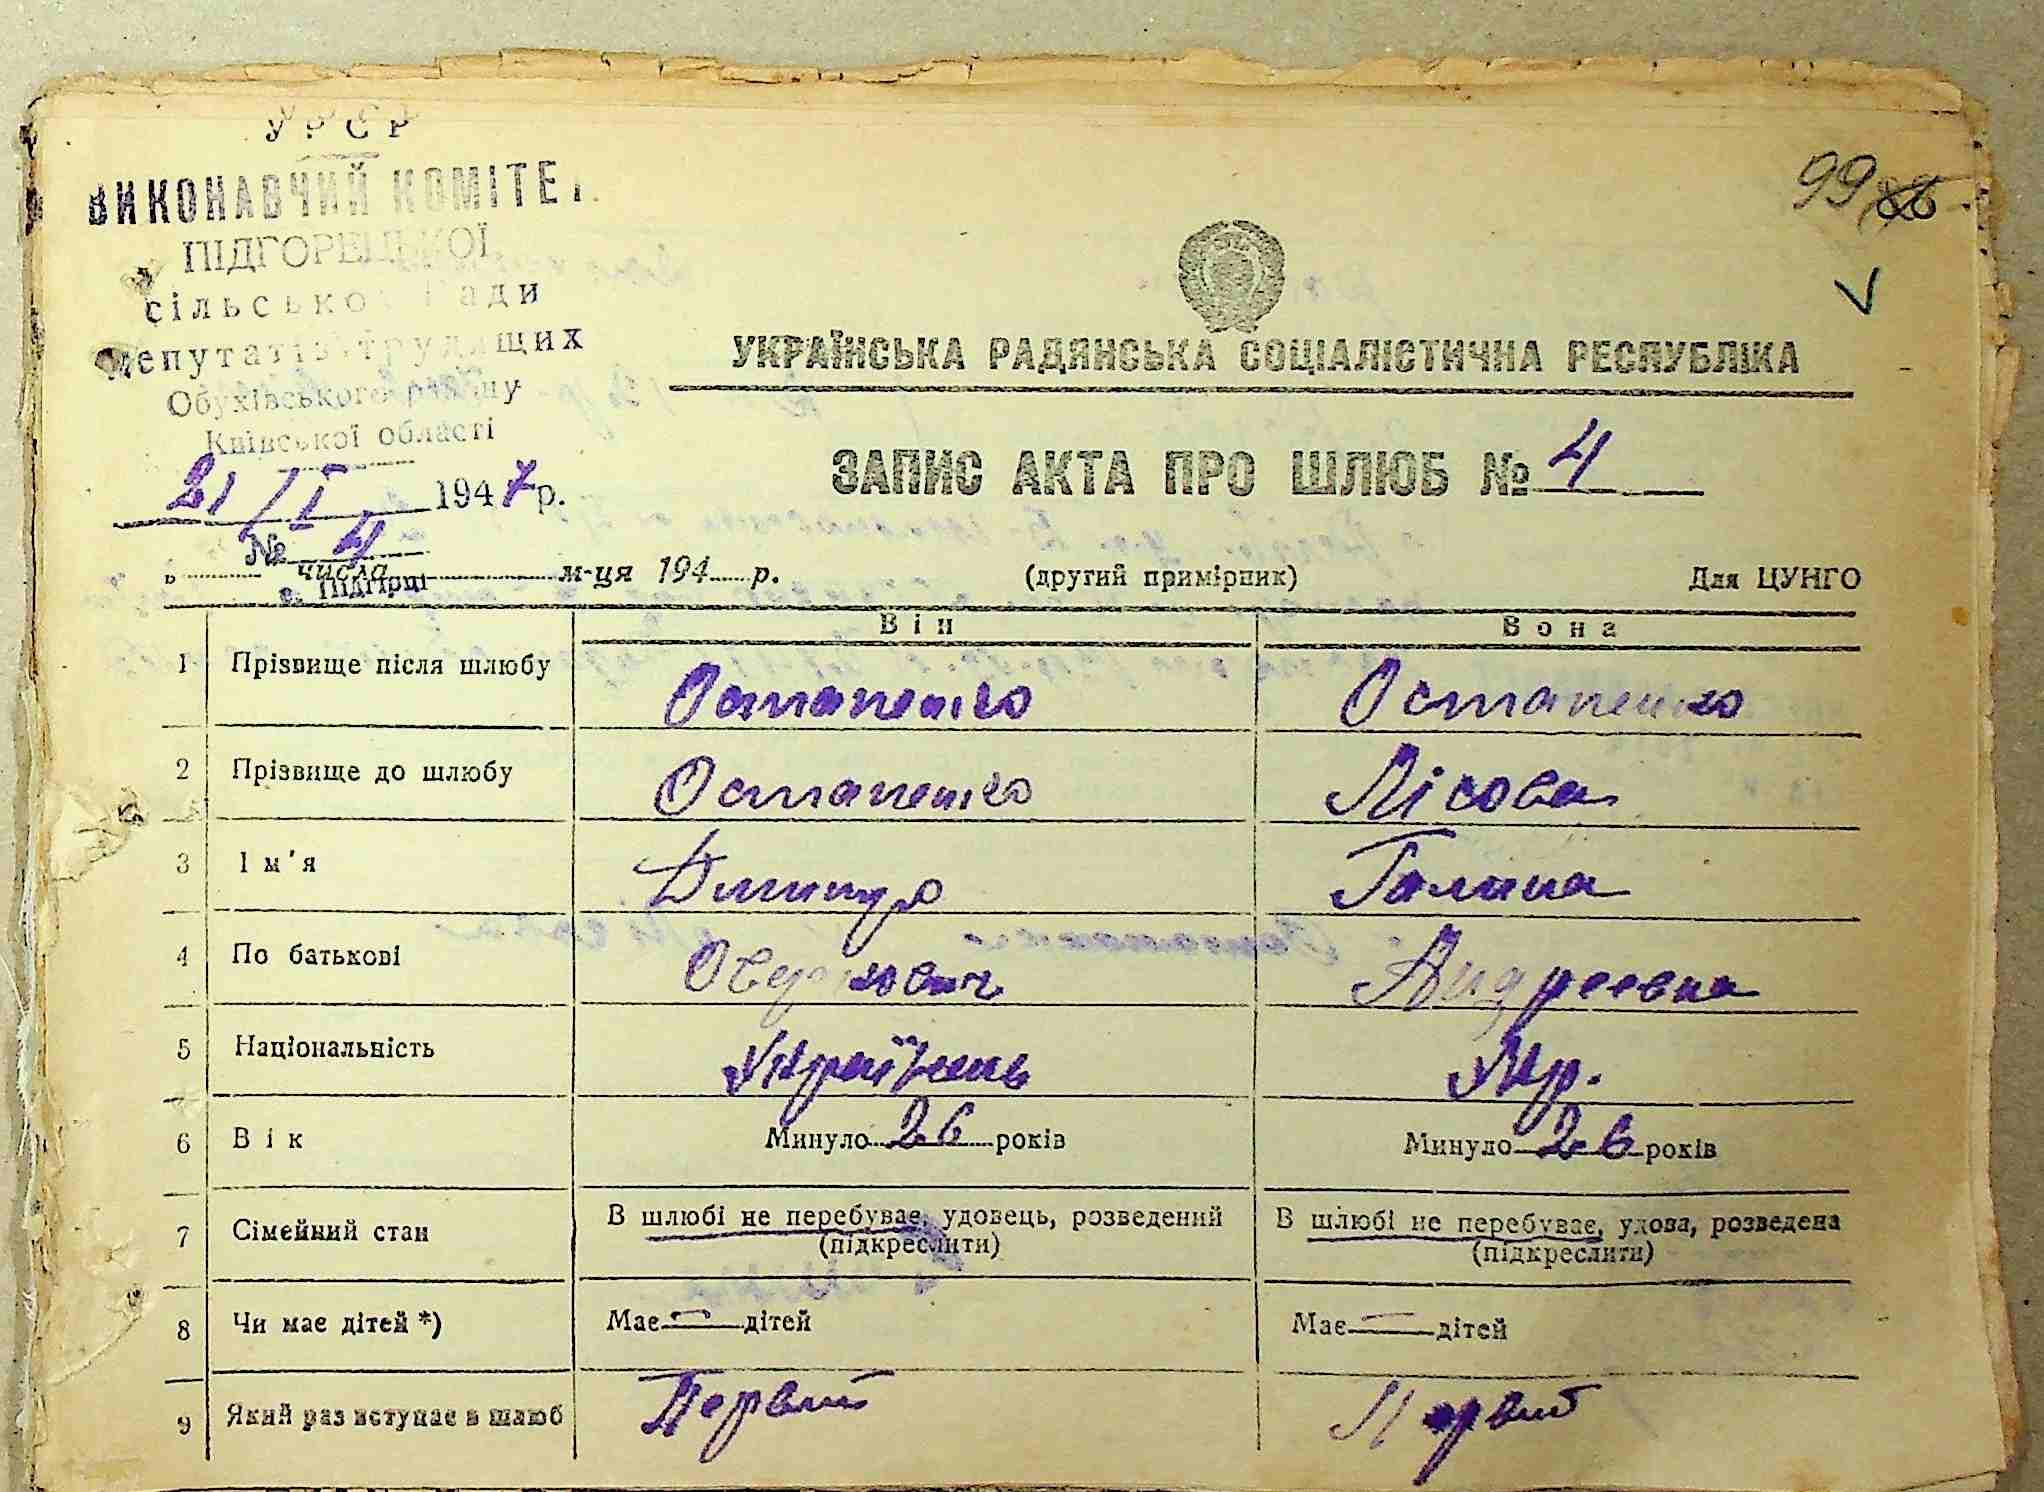 УРСР
ВИКОНАВЧИЙ КОМІТЕТ
ПІДГОРЕЦЬКОЇ
сільської Ради
депутатів трудящих
Обухівського району
Київської області
21/I 1947 р.
№ 4
с. Підгірці
99 86
УКРАЇНСЬКА РАДЯНСЬКА СОЦІАЛІСТИЧНА РЕСПУБЛІКА
ЗАПИС АКТА ПРО ШЛЮБ № 4
числа м-ця 194 р. (другий примірник) Для ЦУНГО
Він Вона
1 Прізвище після шлюбу Остапенко Остапенко
2 Прізвище до шлюбу Остапенко Лісова
3 Ім'я Дмитро Галина
4 По батькові Андреевна
5 Національність Українець Укр.
6 Вік Минуло 26 років Минуло 26 років
7 Сімейний стан В шлюбі не перебуває, удовець, розведений В шлюбі не перебуває, удова, розведена
(підкреслити) (підкреслити)
8 Чи має дітей *) Має — дітей Має — дітей
9 Який раз вступає в шлюб Первий Первий